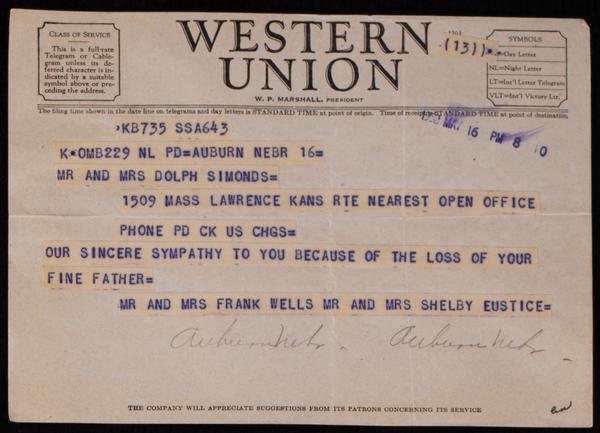 CLASS OF SERVICE
This is a full-rate
Telegram or Cable-
gram unless its de-
ferred character is
indicated by a suitable
symbol above or pre-
ceding the address.
WESTERN
UNION
W. P. MARSHALL, PRESIDENT
1201
(13)
SYMBOLS
=Day Letter
NL=Night Letter
LT=Int'l Letter Telegram
VLT=Int'l Victory Ltr.
The filing time shown in the date line on telegrams and day letters is STANDARD TIME at point of origin. Time of receipt is STANDARD TIME at point of destination
MAY 16 PM 8 10
•KB735 SSA643
K•OMB229 NL PD=AUBURN NEBR 16=
MR AND MRS DOLPH SIMONDS=
1509 MASS LAWRENCE KANS RTE NEAREST OPEN OFFICE
PHONE PD CK US CHGS=
OUR SINCERE SYMPATHY TO YOU BECAUSE OF THE LOSS OF YOUR
FINE FATHER=
MR AND MRS FRANK WELLS MR AND MRS SHELBY EUSTICE=
Auburn Nebr. Auburn Nebr.
THE COMPANY WILL APPRECIATE SUGGESTIONS FROM ITS PATRONS CONCERNING ITS SERVICE